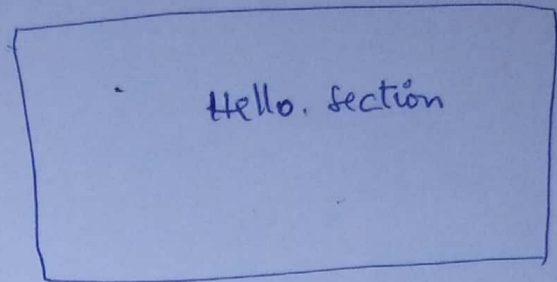 Hello. Section